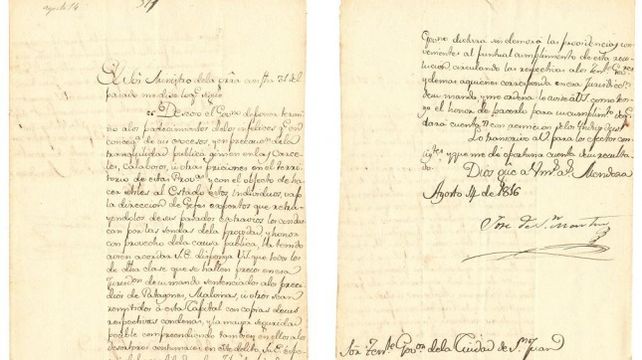 agosto 14
El Sôr Ministro de la grâ con fha 31 del
pasado me dise lo q.e sigue
"Deseoso el Gov.no de poner termi
no alos padecimientos delos infelices q.e en
conseq.a de sus excesos, y en precaucion dela
tranquilidad publica gimen en las Carce
les, Calabozos, u otras prisiones en el terri
torio de esta Prov.a y con el objeto de ha
cer utiles al Estado estos individuos, vajo
la direccion de Gefes expertos que retra
yendolos de sus pasados extravios los condus
can por las sendas de la providad y honor
con provecho dela causa publica, Ha tenido
avien acordar S.E. disponga V.S. que todos los
de dicha clase que se hallen presos en esa
jurisdon de su mando sentenciados alos presi
dios de Patagones, Malvinas, u otros sean
remitidos a esta Capital con copias de sus
respectivas condenas, y la mayor seguridad
posible comprendiendo tambien en ellos alos
desertores
Gov.no dictará sin demora las providencias con
vementes al puntual cumplimiento de esta reso
lucion circulando las respectivas alos Ten.tes Gov.res
y demas aquienes corresponda en esa Jurisdic.n
de su mando y me ordena lo avise á V.S. como ten
go el honor de hacerlo para su cumplimiento
dará cuenta
Lo transcrivo a V. para los efectos con
sig.tes y que me dé oportuna cuenta de su resulta
do.
Dios gue a Vm. a.s Mendoza
Agosto 14 de 1816
José de S.n Martin
Sôr Ten.te Gov.or de la Ciudad de S.n Juan